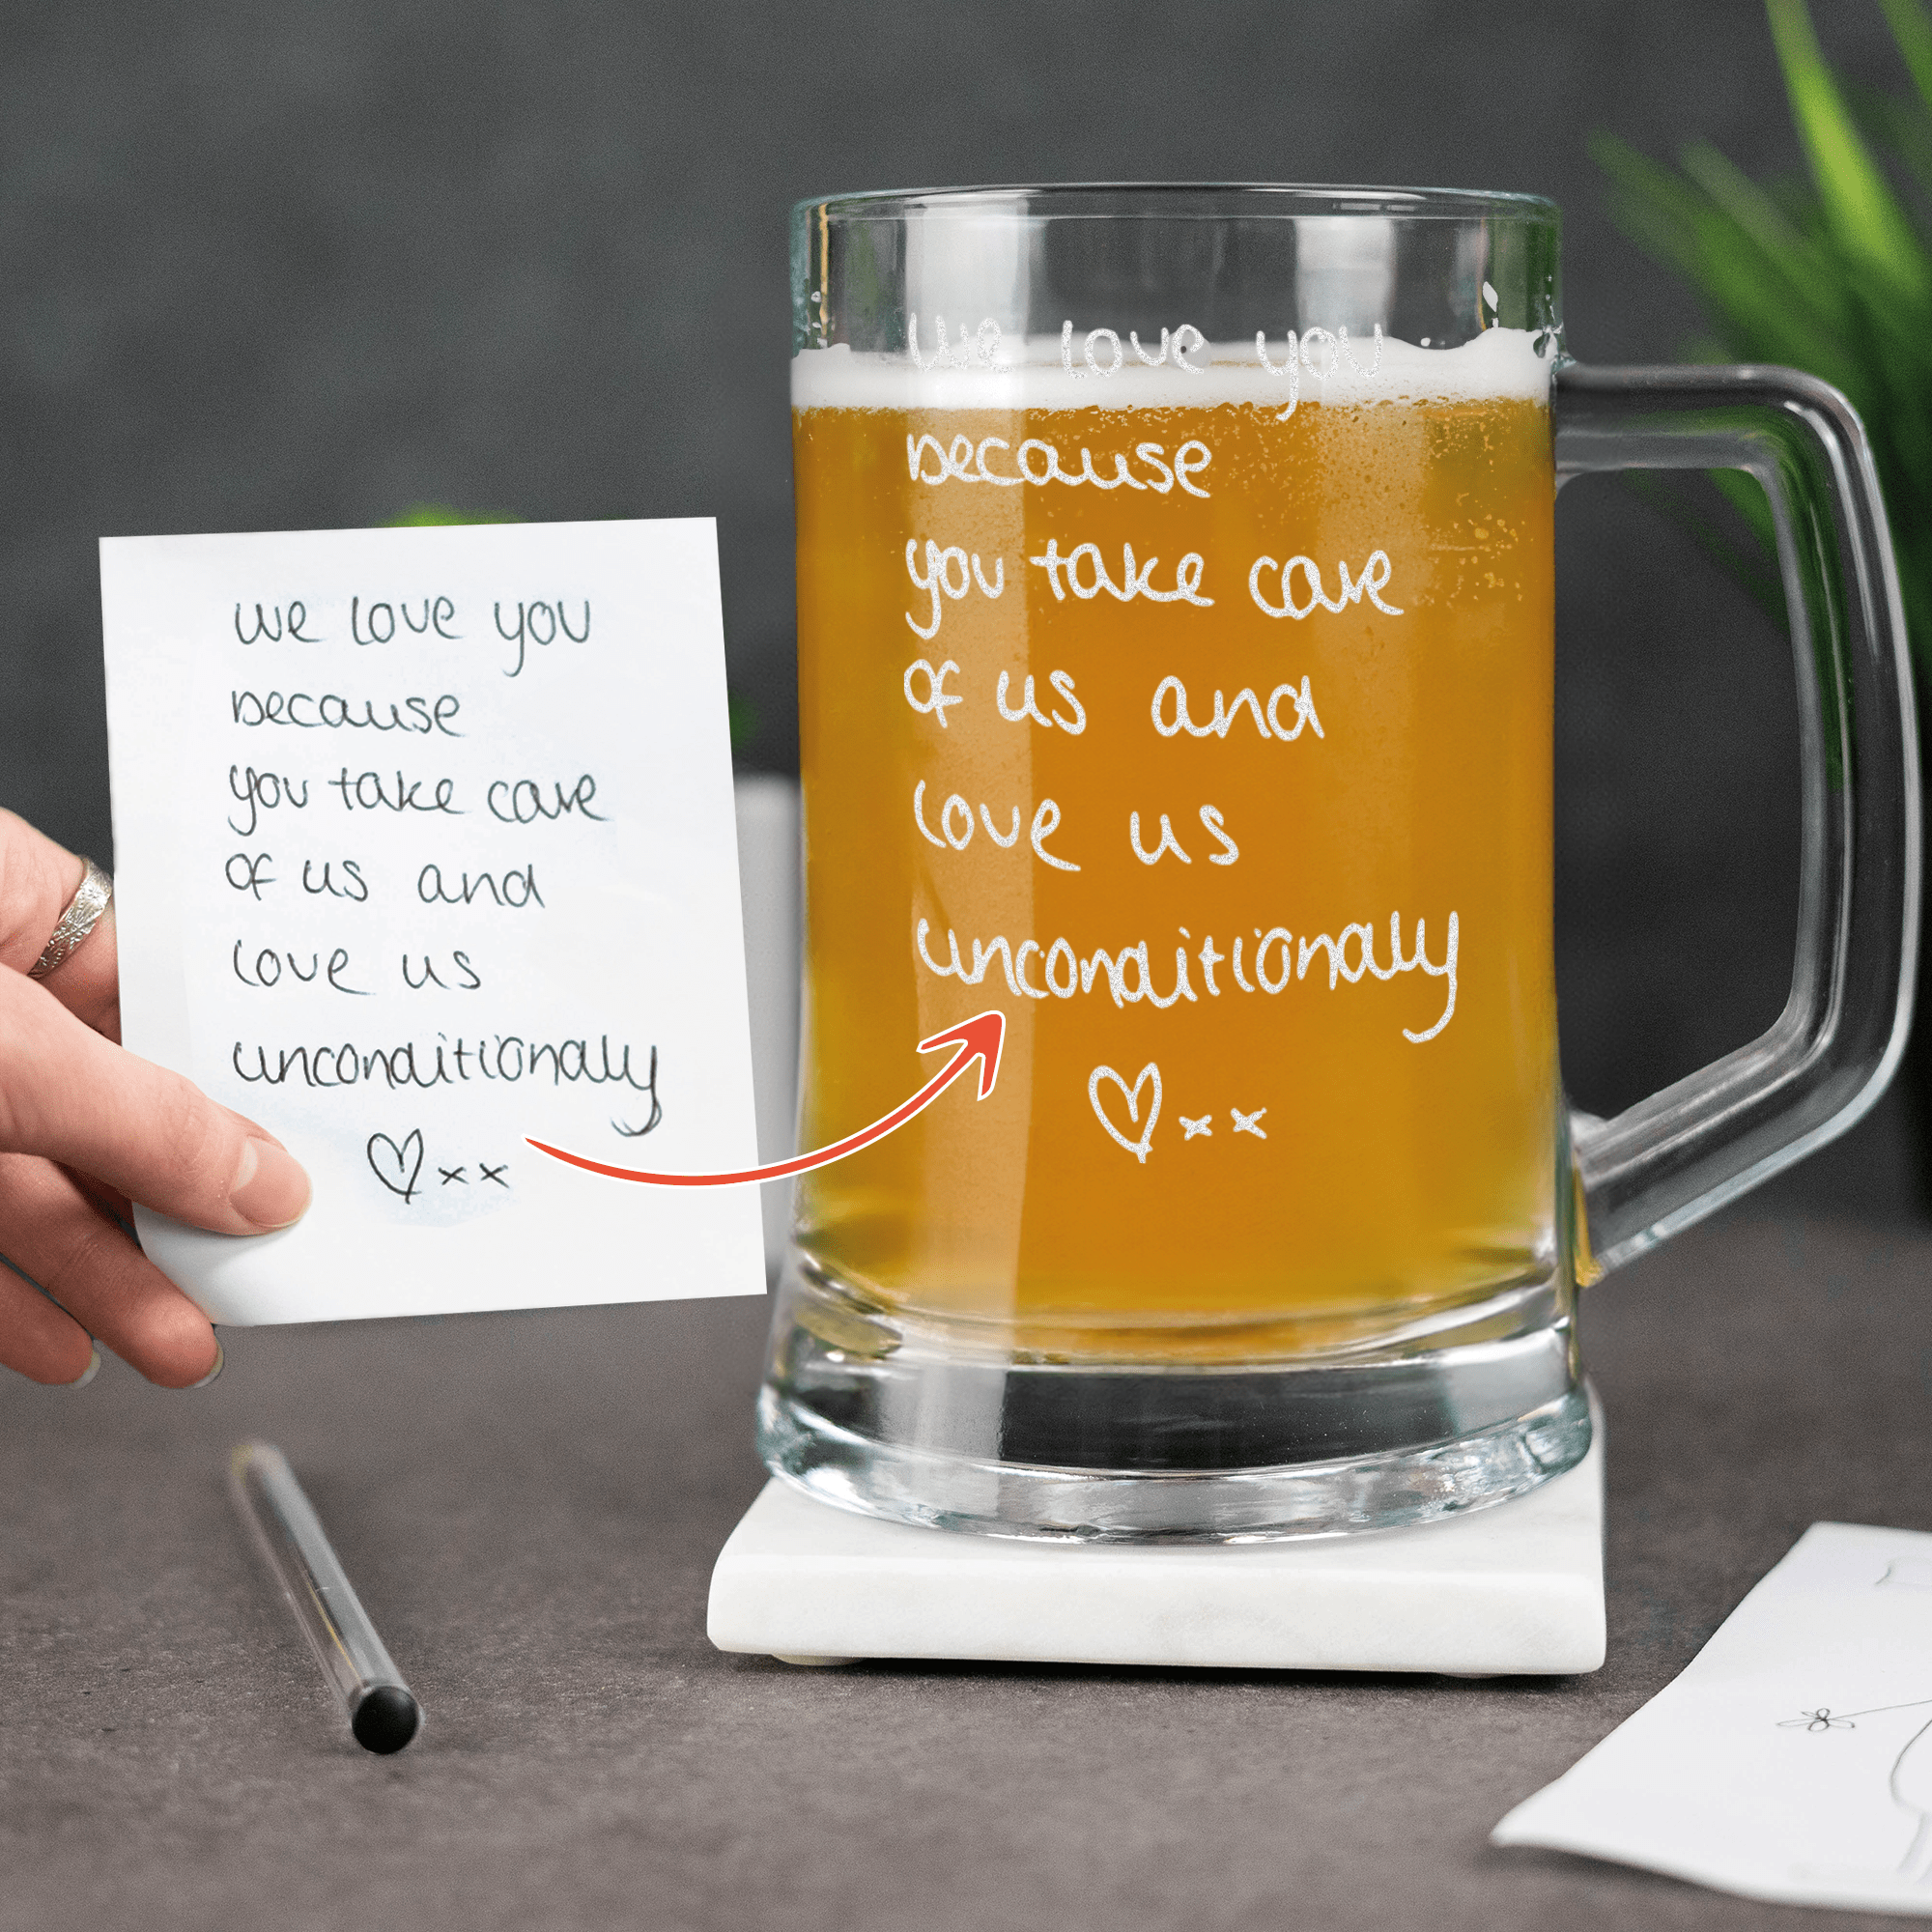 we love you
because
you take care
of us and
love us
unconditionally
♡xx
we love you
because
you take care
of us and
love us
unconditionally
♡xx